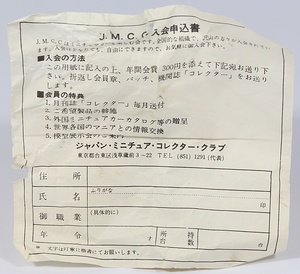 J.M.C.C入会申込書
■入会の方法
この用紙に記入の上、年間会費 300円を添えて下記宛お送り下
さい。折返し会員章、バッチ、機関誌「コレクター」をお送り
します。
■会員の特典
1.月刊誌「コレクター」毎月送付
2.ご希望製品の斡旋
3.外国ミニチュアーカーカタログ等の贈呈
4.世界各国のマニアとの情報交換
5.模型展示会のご案内
ジャパン・ミニチュア・コレクター・クラブ
東京都台東区浅草蔵前3-22 TEL (851) 1291 (代表)
住所
ふりがな
氏名
印
御職業
(具体的に)
年令
才
所持台数
台
※ 文字は丁寧に楷書にてお願いします。